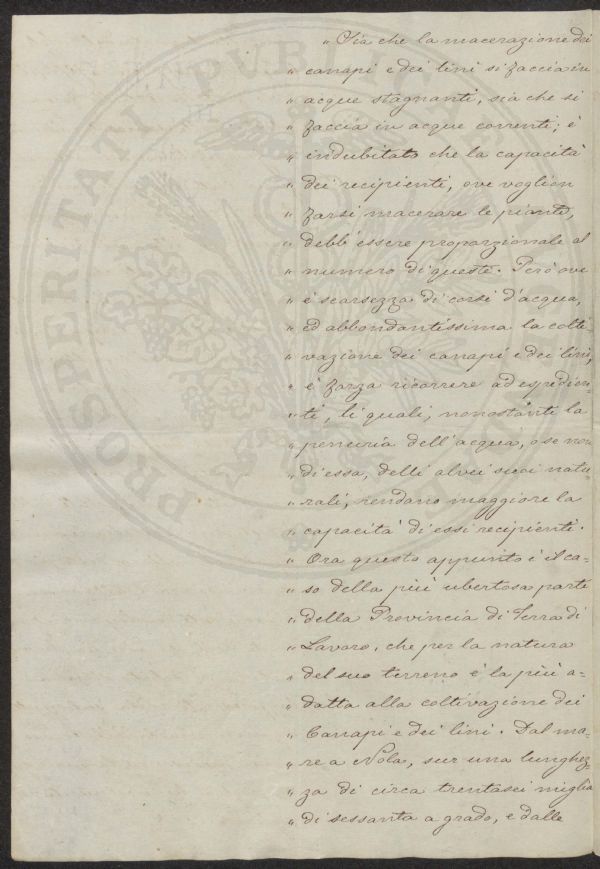 „ Sia che la macerazione dei
„ canapi e dei lini si faccia in
„ acque stagnanti, sia che si
„ faccia in acque correnti; è
„ indubitato che la capacità
„ dei recipienti, ove voglion
„ farsi macerare le piante,
„ debb'essere proporzionale al
„ numero di queste. Però ove
„ è scarsezza di corsi d'acqua,
„ ed abbondantissima la colti-
„ vazione dei canapi e dei lini,
„ è forza ricorrere ad espedien-
„ ti, li quali, nonostante la
„ penuria dell'acqua, o se non
„ di essa, delli alvei suoi natu
„ rali, rendano maggiore la
„ capacità di essi recipienti.
„ Ora questo appunto è il ca-
„ so della più ubertosa parte
„ della Provincia di Terra di
„ Lavoro, che per la natura
„ del suo terreno è la più a-
„ datta alla coltivazione dei
„ Canapi e dei lini. Dal ma-
„ re a Nola, sur una lunghez-
„ za di circa trentasei miglia
„ di sessanta a grado, e dalle
PROSPERITATI PVBLICAE